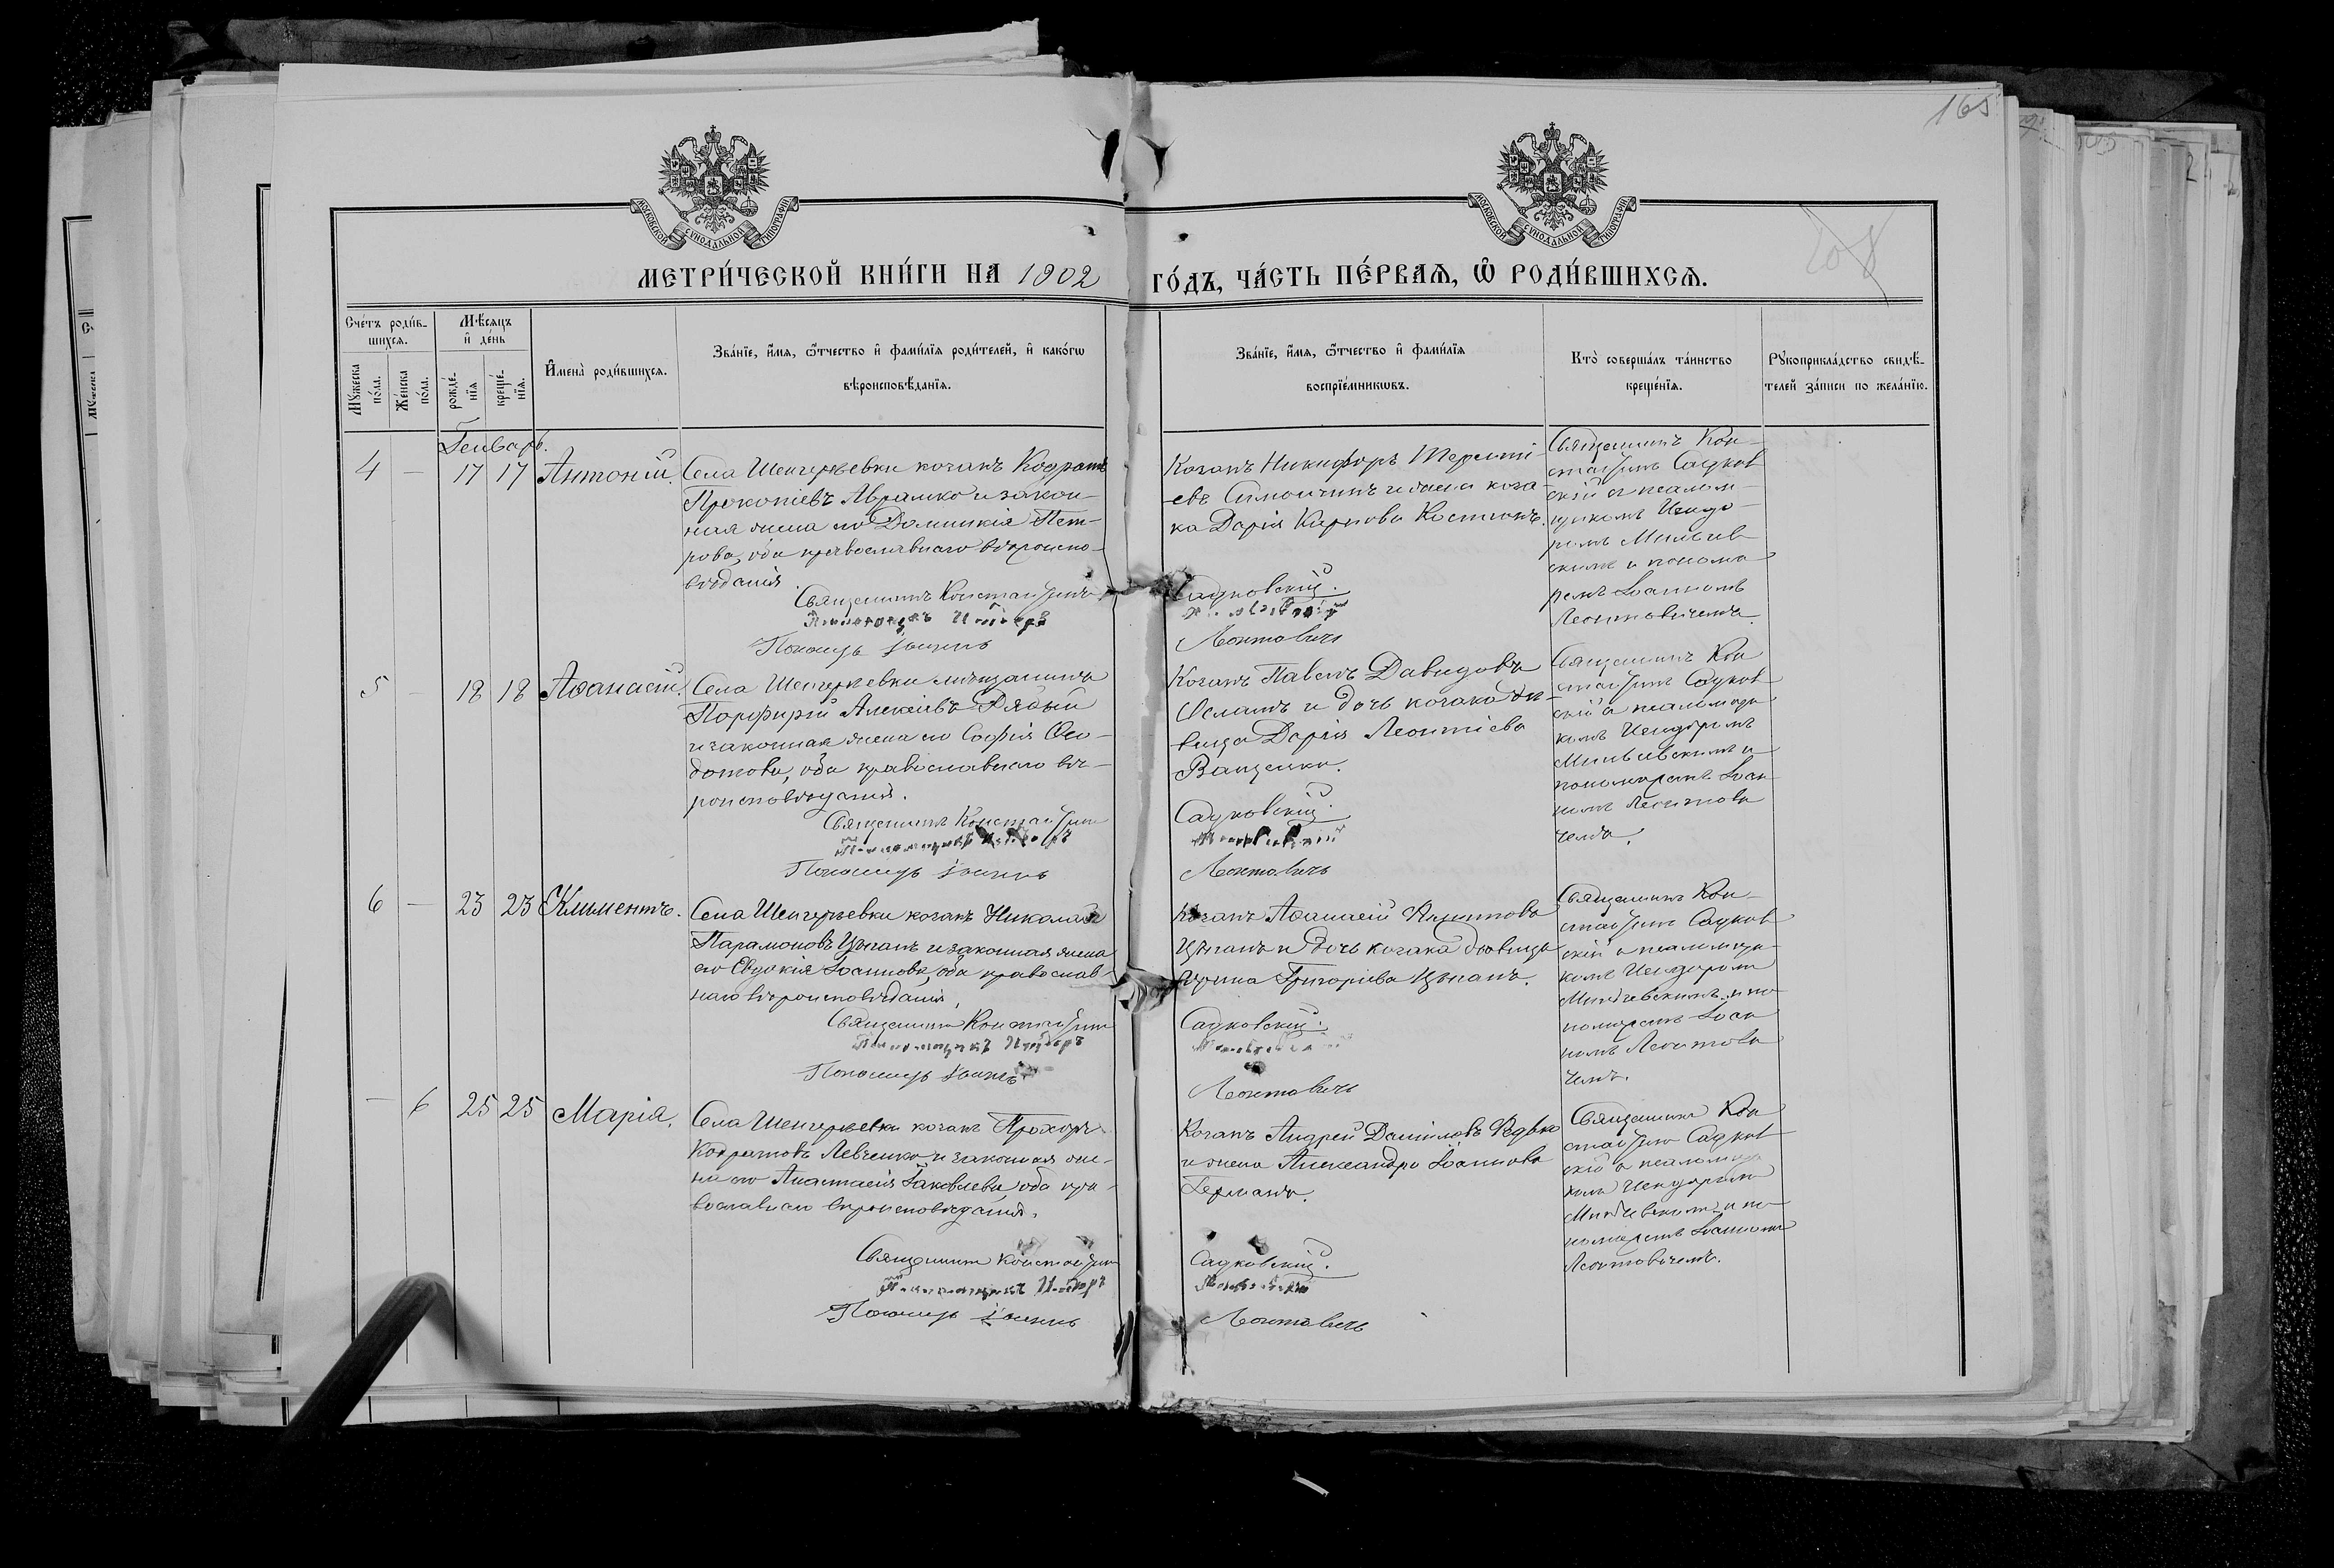 165
208
МОСКОВСКОЙ СѴНОДАЛЬНОЙ ТИПОГРАФІИ
МОСКОВСКОЙ СѴНОДАЛЬНОЙ ТИПОГРАФІИ
МЕТРИ́ЧЕСКОЙ КНИ́ГИ НА 1902
ГО́ДЪ, ЧА́СТЬ ПЕ́РВАѦ, Ѿ РОДИ́ВШИХСѦ.
Сче́тъ роди́в-
шихсѧ.
Мꙋ́жеска
по́ла.
Же́нска
по́ла.
Мѣ́сѧцъ
и҆ де́нь
рожде́-
нїѧ
креще́-
нїѧ.
И҆мена̀ роди́вшихсѧ.
Зва́нїе, и҆́мѧ, ѻ҆́тчество и҆ фами́лїѧ роди́телей, и҆ како́гѡ
вѣроисповѣ́данїѧ.
Зва́нїе, и҆́мѧ, ѻ҆́тчество и҆ фами́лїѧ
воспрїе́мникѡвъ.
Кто̀ соверша́лъ та́инство
креще́нїѧ.
Рꙋкоприкла́дство свидѣ́-
телей за́писи по жела́нїю.
Генварь.
4 — 17 17 Антоній.
Села Шенгерѣевки козакъ Кодратъ
Прокопіевъ Аврамко и закон-
ная жена его Домникія Пет-
рова, оба православнаго вѣроиспо-
вѣданія.
Священникъ Константинъ
Псаломщикъ Исидоръ
Пономарь Іоаннъ
Козакъ Никифоръ Теренті-
евъ Симончикъ и жена коза-
ка Дарія Карпова Костюкъ.
Садковскій.
Леонтовичъ
Священникъ Кон-
стантинъ Садков-
скій съ псалом-
щикомъ Исидо-
ромъ
скимъ и понома-
ремъ Іоанномъ
Леонтовичемъ.
5 — 18 18 Аѳанасій.
Села Шенгерѣевки мѣщанинъ
Порфирій Алексѣевъ Рядый
и законная жена его Софія Ѳео-
дотова, оба православнаго вѣ-
роисповѣданія.
Священникъ Константинъ
Псаломщикъ Исидоръ
Пономарь Іоаннъ
Козакъ Павелъ Давидовъ
и дочь козака дѣ-
вица Дарія Леонтіева
Ващенко.
Садковскій.
Леонтовичъ
Священникъ Кон
стантинъ Садков-
скій съ псаломщи
комъ Исидоромъ
и
пономаремъ Іоан-
номъ Леонтови
чемъ.
6 — 23 23 Климентъ.
Села Шенгерѣевки козакъ Николай
Парамоновъ Цѣпанъ и законная жена
его Евдокія Іоаннова, оба православ-
наго вѣроисповѣданія.
Священникъ Константинъ
Псаломщикъ Исидоръ
Пономарь Іоаннъ
Козакъ Аѳанасій
Цѣпанъ и дочь козака дѣвица
Ирина Григоріева Цѣпанъ.
Садковскій.
Леонтовичъ
Священникъ Кон-
стантинъ Садков
скій съ псаломщи-
комъ Исидоромъ
и по-
номаремъ Іоан
номъ Леонтови
чемъ.
— 6 25 25 Марія.
Села Шенгерѣевки козакъ Прохоръ
Кодратовъ Левченко и законная же-
на его Анастасія Іаковлева, оба пра-
вославнаго вѣроисповѣданія.
Священникъ Константинъ
Псаломщикъ Исидоръ
Пономарь Іоаннъ
Козакъ Андрей Даниловъ Редько
и жена Александра Іоаннова
Германъ.
Садковскій.
Леонтовичъ
Священникъ Кон
стантинъ Садков-
скій съ псаломщи
комъ Исидоромъ
и по-
номаремъ Іоанномъ
Леонтовичемъ.